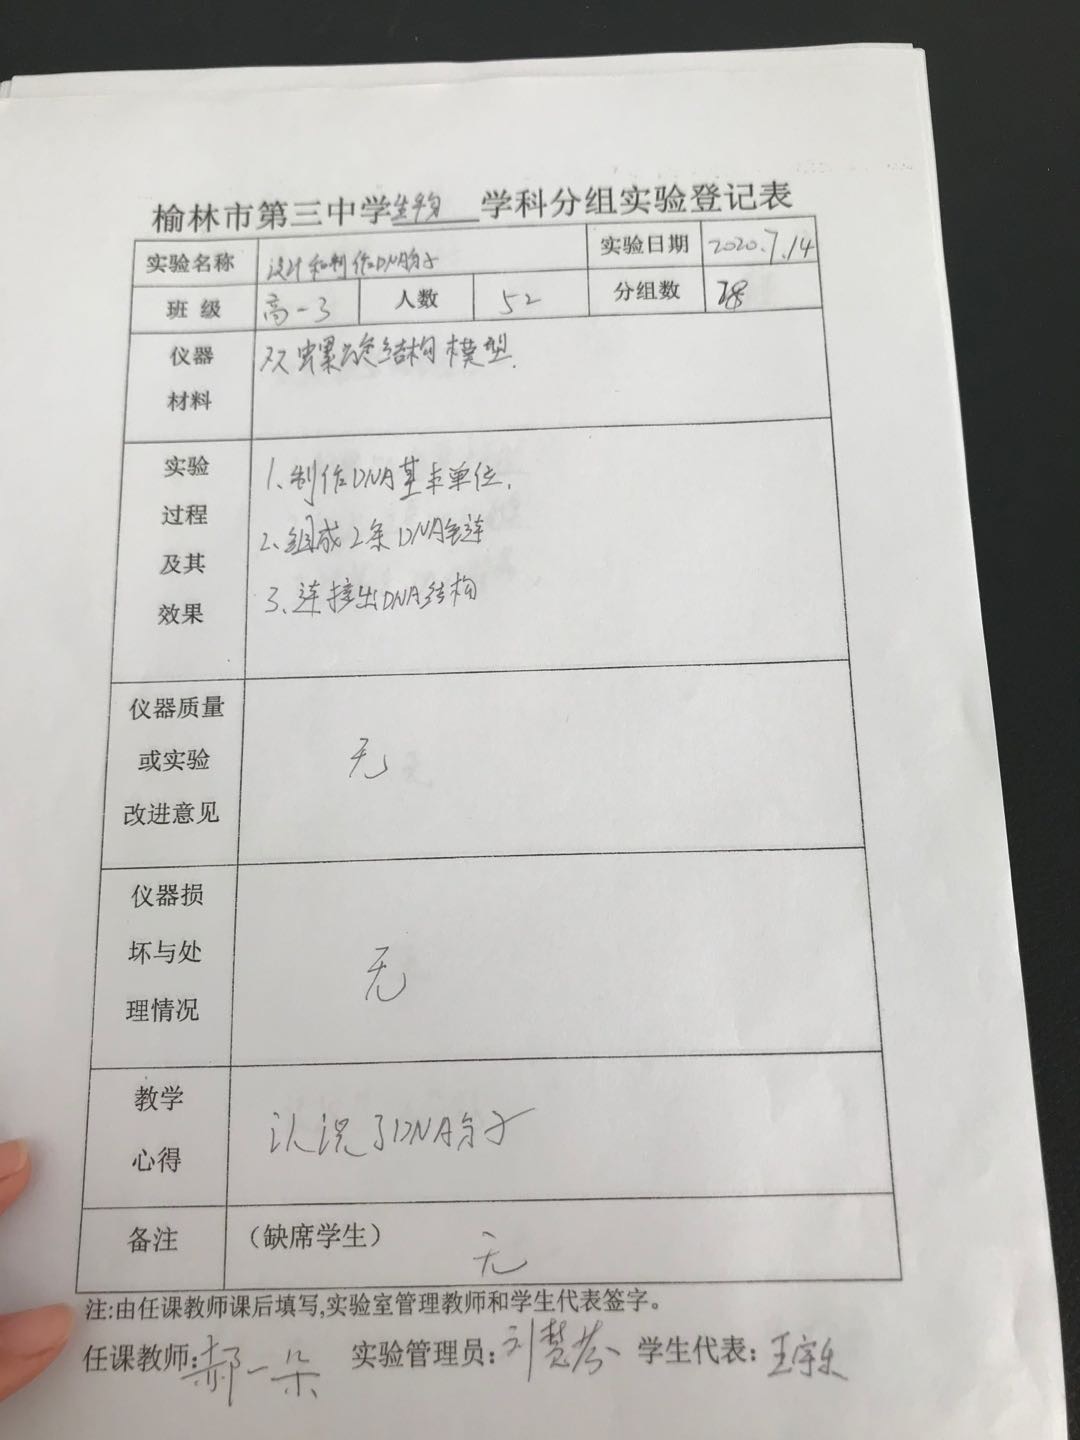 榆林市第三中学生物学科分组实验登记表
实验名称 设计和制作DNA分子 实验日期 2020.7.14
班级 高一3 人数 52 分组数
仪器 双螺旋结构模型.
材料
实验 1、制作DNA基本单位.
过程 2、组成2条DNA长链
及其 3、连接出DNA结构
效果
仪器质量
或实验 无
改进意见
仪器损
坏与处 无
理情况
教学 认识了DNA分子
心得
备注 (缺席学生) 无
注:由任课教师课后填写,实验室管理教师和学生代表签字。
任课教师:郝一朵 实验管理员:刘慧芬 学生代表:王宇乐